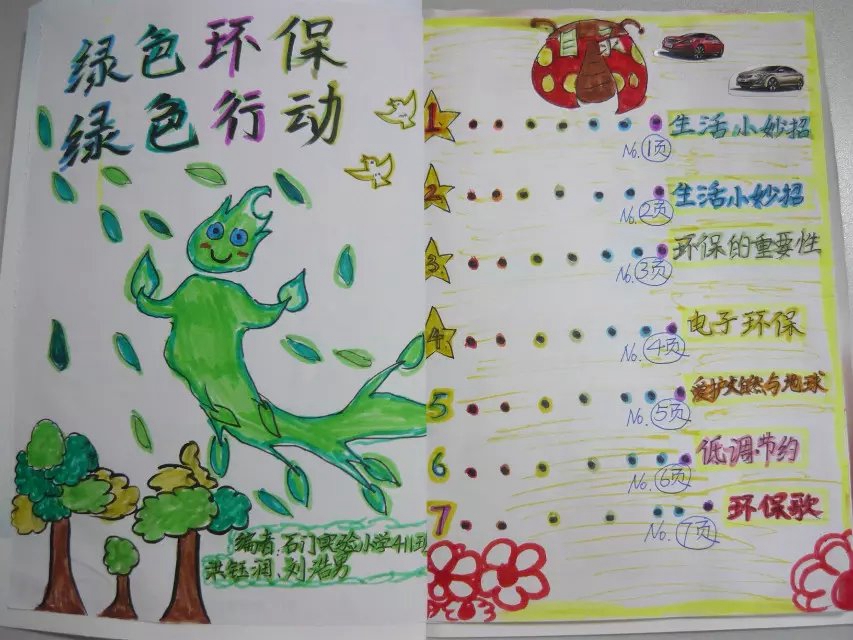 绿色环保
绿色行动
编者:石门实验小学411班
洪钰润、刘浩男
1 生活小妙招
No.1页
2 生活小妙招
No.2页
3 环保的重要性
No.3页
4 电子环保
No.4页
5 爱护大自然与地球
No.5页
6 低调节约
No.6页
7 环保歌
No.7页